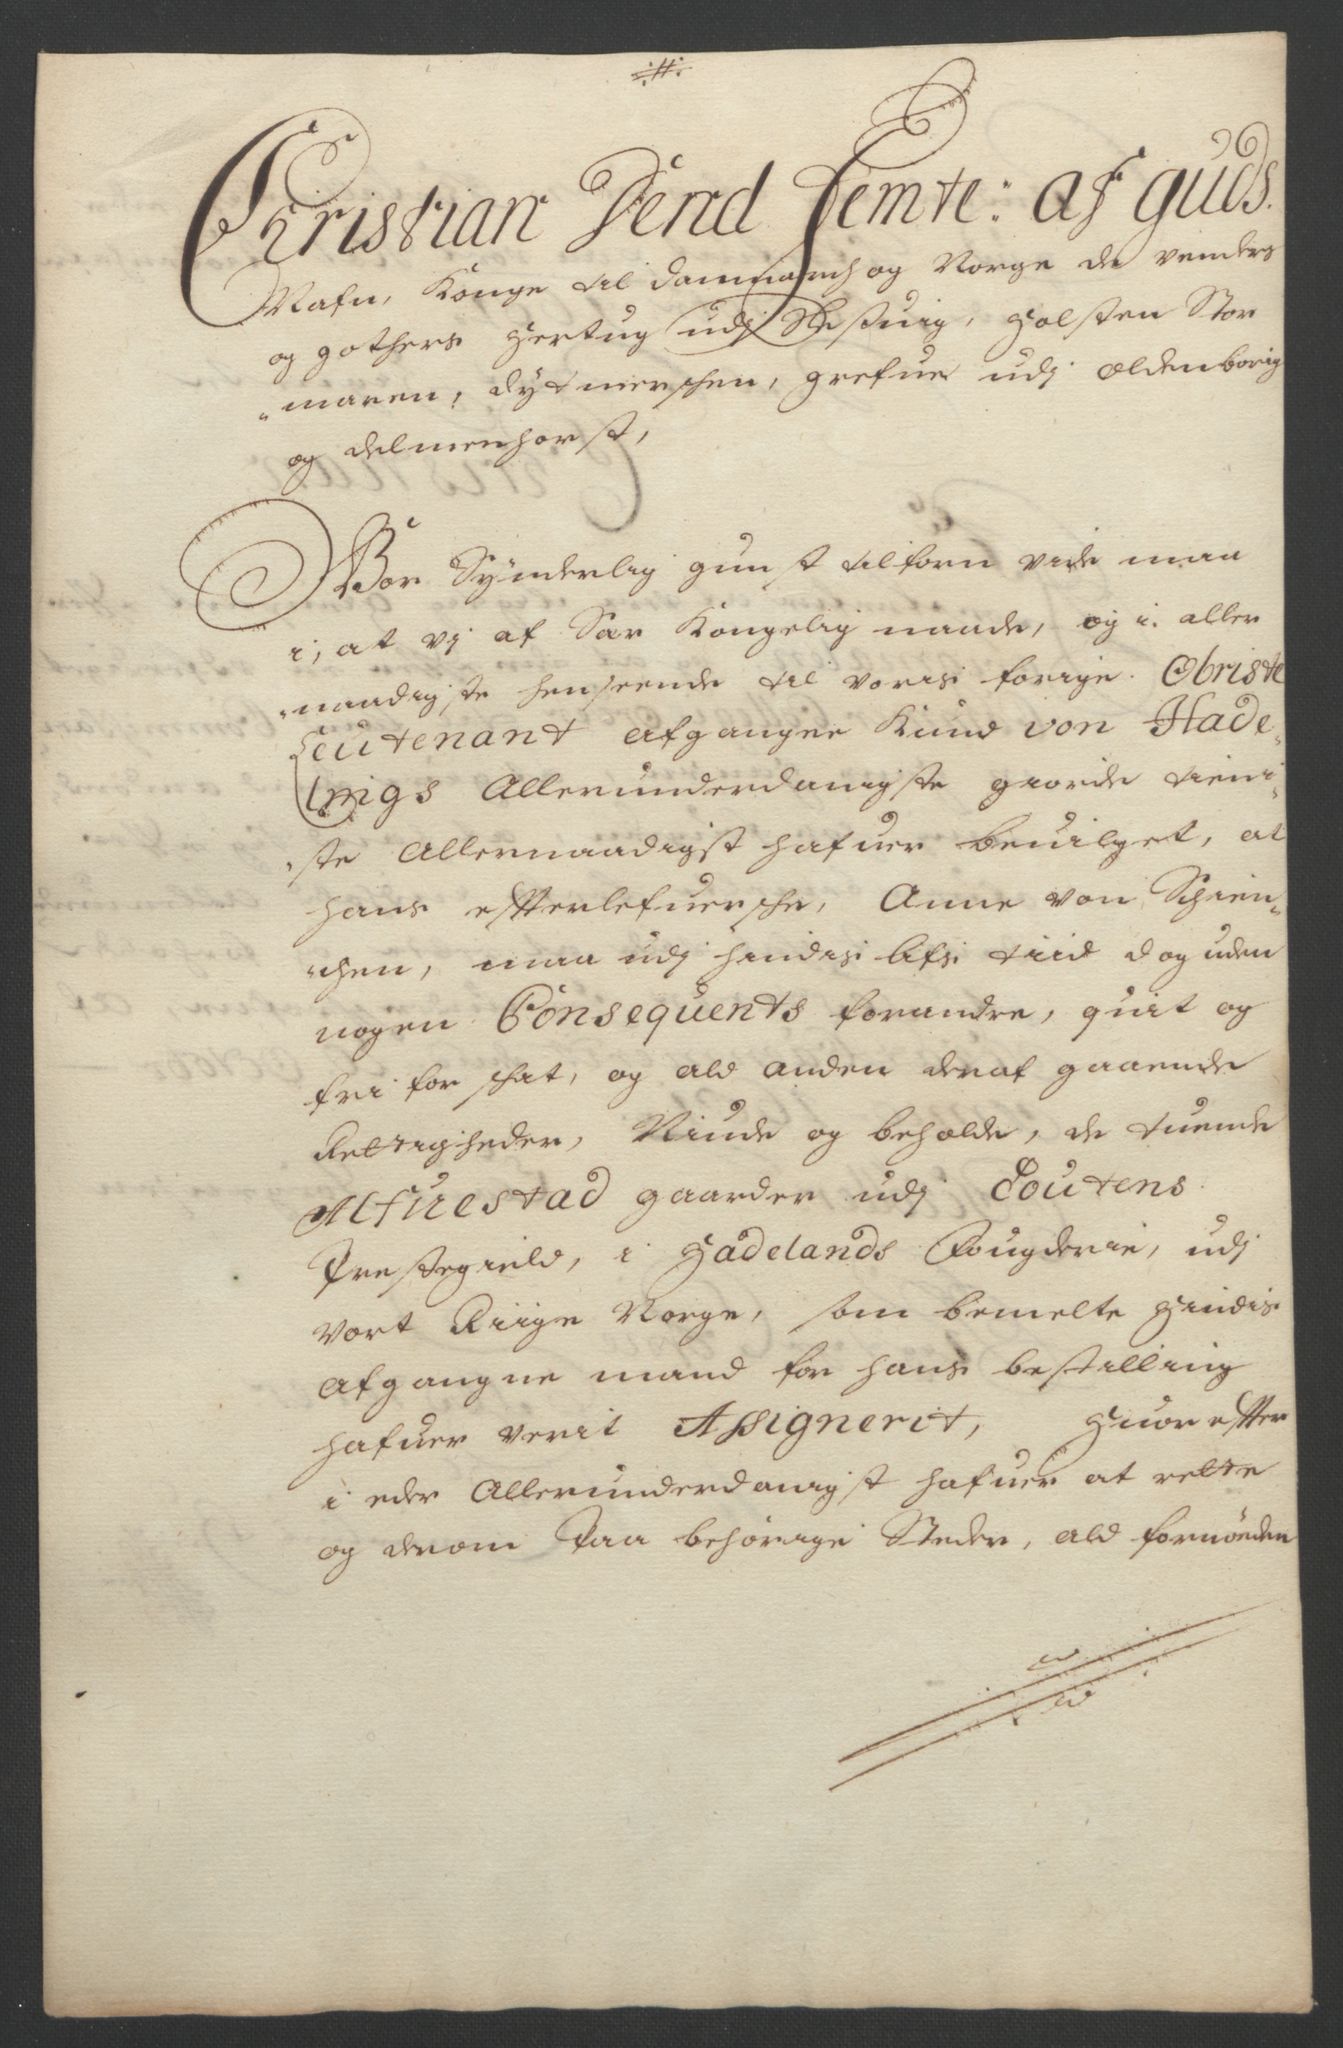 Christian Dend Femte: af guds.
Nafn, Konge til Danmarch og Norge de venders
og gothers Hertug udj Sleßuig, Holsten Stor
maren, dytmerschen, grefue udj oldenborig
og delmenhorst,
Vor Synderlig gunst tilforn vide maa
i, at vj af Sær Kongelig naade, og i. aller
naadigste henseende til voris forige. Obriste
Leutenant afgangne Knud von Hade-
lnigs Allerunderdanigste giorde tieni-
ste Allernaadigst hafuer beuilget, at
hans effterlefuersche, Anne von Schien-
chen, maa udj hindis lifs tiid dog uden
nogen Consequents forandre, quit og
fri for schat, og ald anden deraf gaaende
Rettigheder, Niude og beholde, de tuende
Alfuestad gaarder udj Toutens
Prestegield, i Hadelands Fougderie, udj
vort Riige Norge, som bemelte Hindis
afgangne mand for hans bestilling
hafuer verit Assignerit, Huor effter
i eder Allerunderdanigst hafuer at rette
og derom Paa behörige Steder, ald fornöden